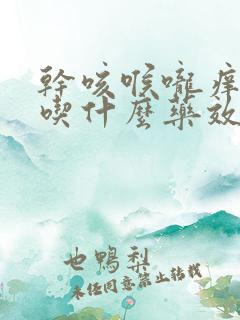 幹咳喉嚨痒
喫什麼藥效
也鴨梨
未经同意禁止转载